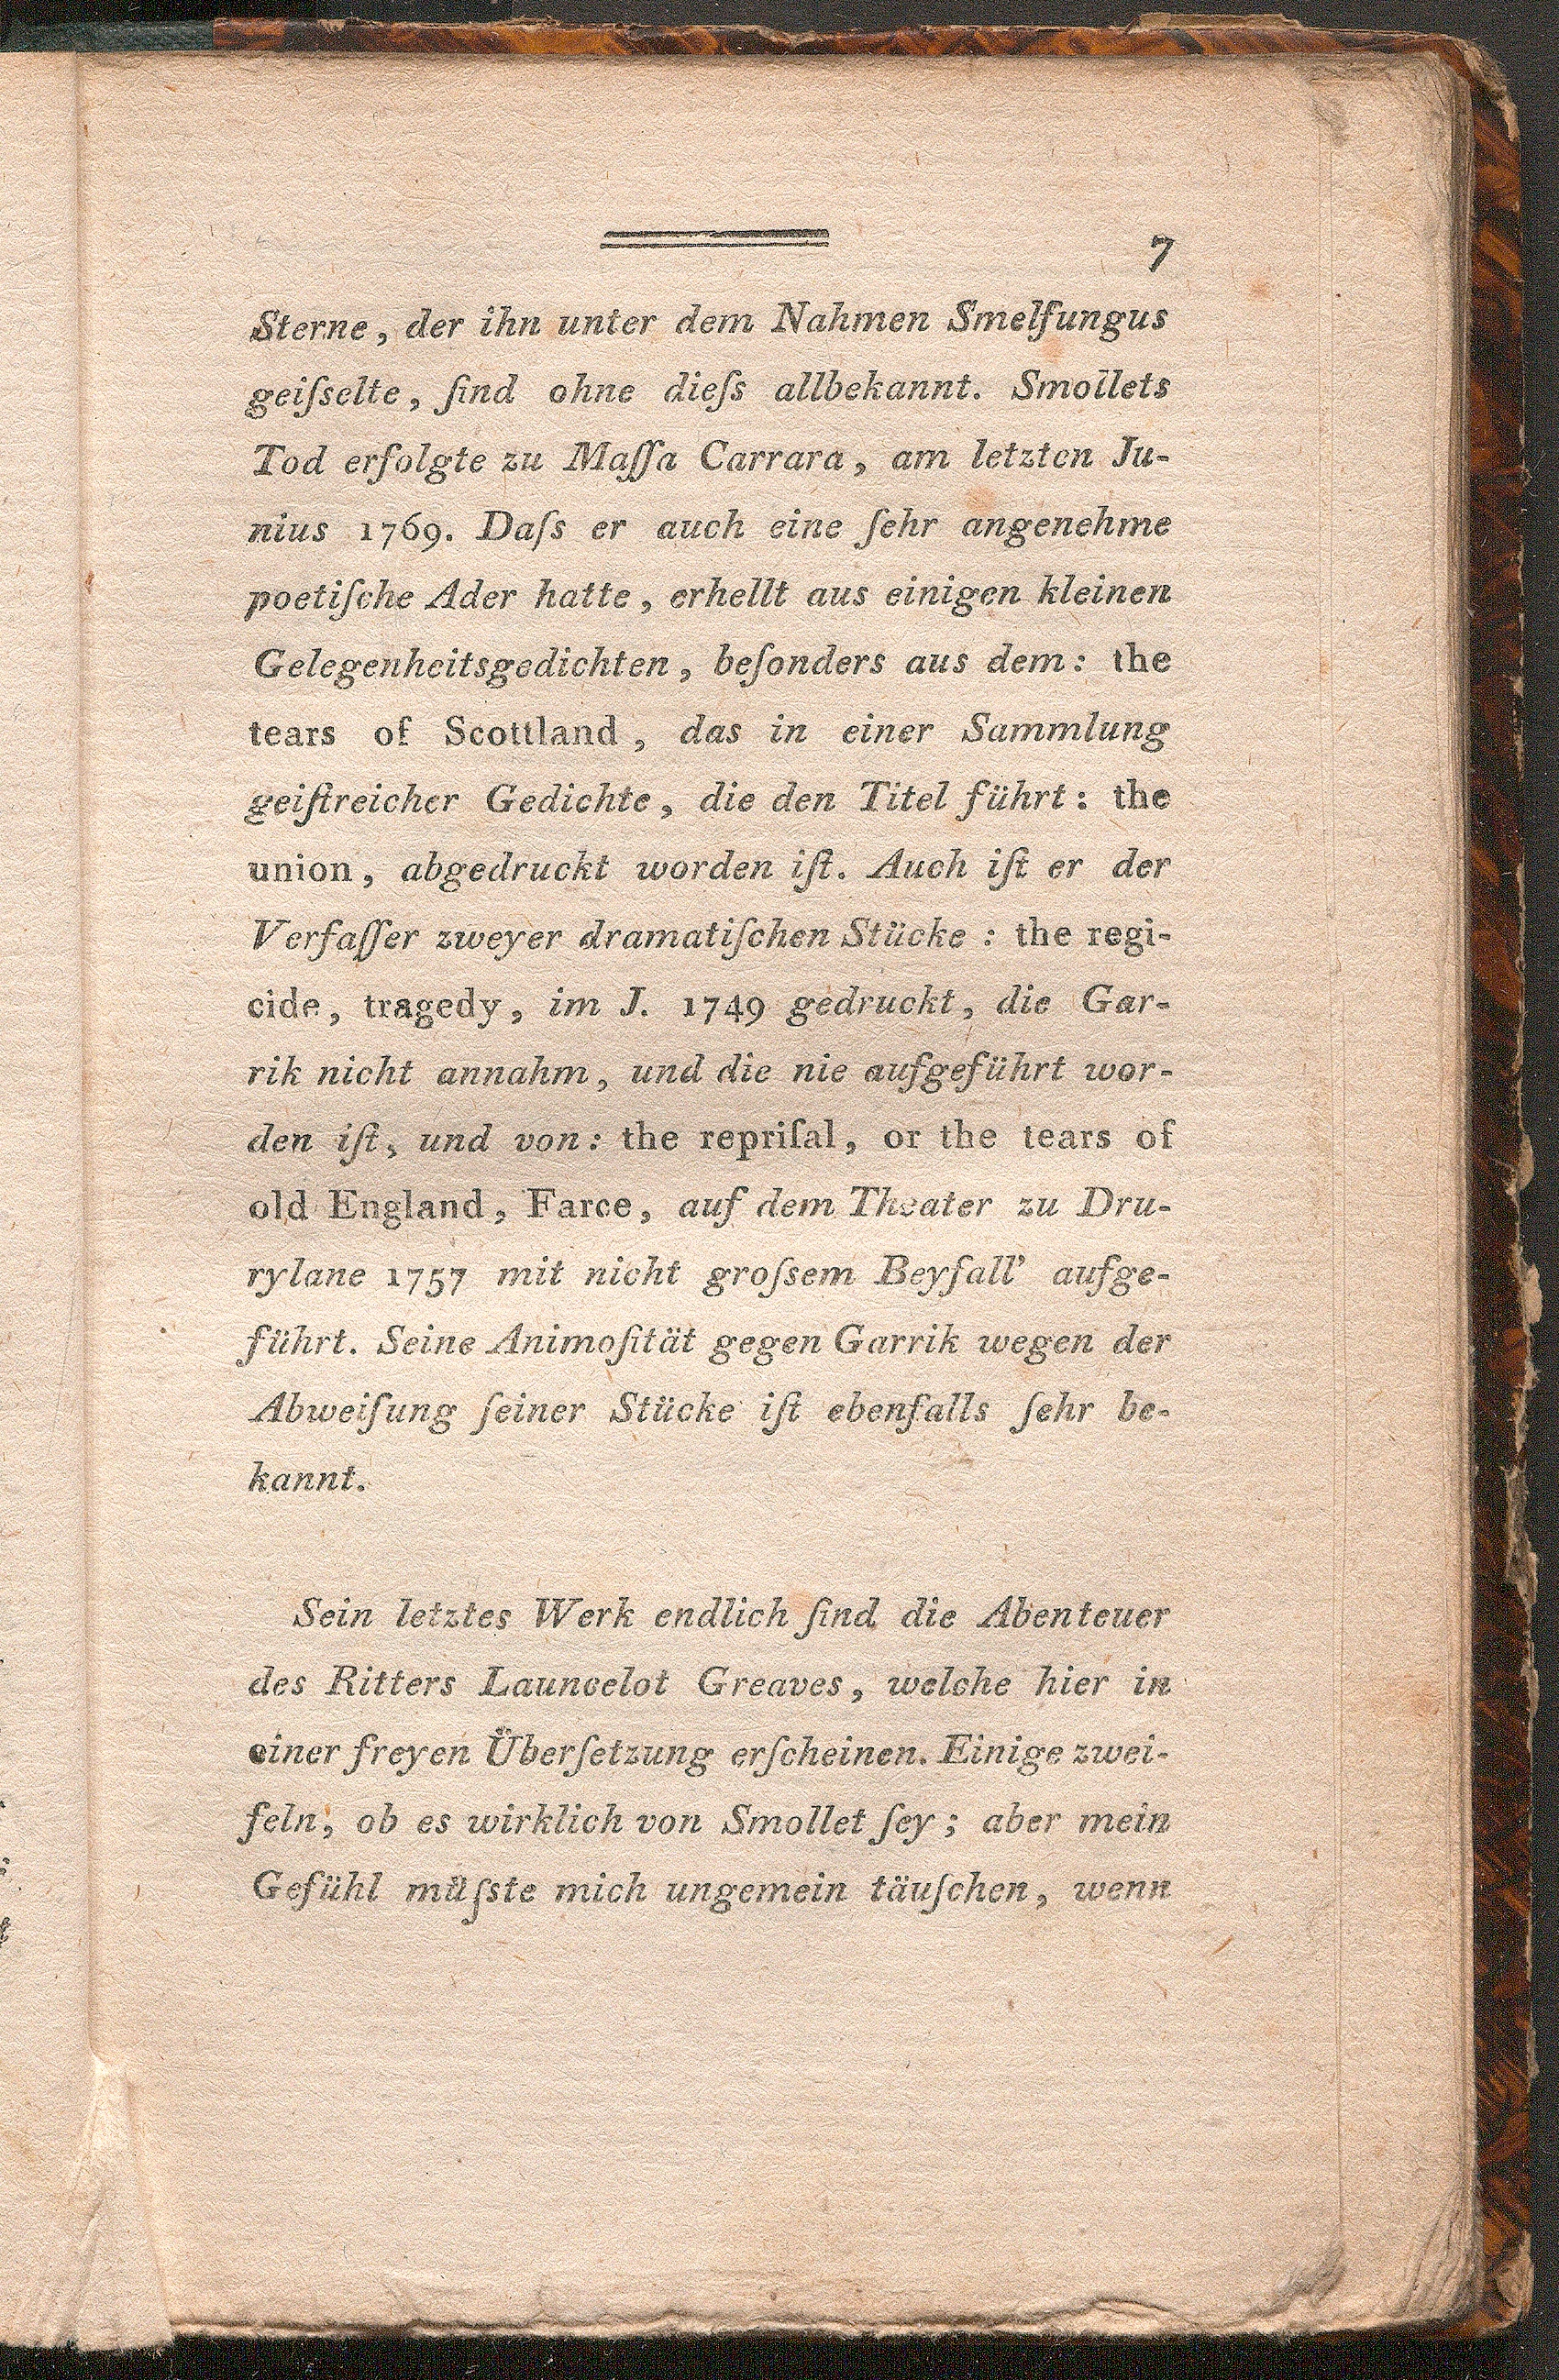 7
Sterne, der ihn unter dem Nahmen Smelfungus
geiſselte, ſind ohne dieſs allbekannt. Smollets
Tod erfolgte zu Maſſa Carrara, am letzten Ju-
nius 1769. Daſs er auch eine ſehr angenehme
poetiſche Ader hatte, erhellt aus einigen kleinen
Gelegenheitsgedichten, beſonders aus dem: the
tears of Scottland, das in einer Sammlung
geiſtreicher Gedichte, die den Titel führt: the
union, abgedruckt worden iſt. Auch iſt er der
Verfaſſer zweyer dramatiſchen Stücke: the regi-
cide, tragedy, im J. 1749 gedruckt, die Gar-
rik nicht annahm, und die nie aufgeführt wor-
den iſt, und von: the repriſal, or the tears of
old England, Farce, auf dem Theater zu Dru-
rylane 1757 mit nicht groſsem Beyfall' aufge-
führt. Seine Animoſität gegen Garrik wegen der
Abweiſung ſeiner Stücke iſt ebenfalls ſehr be-
kannt.
Sein letztes Werk endlich ſind die Abenteuer
des Ritters Launcelot Greaves, welche hier in
einer freyen Überſetzung erſcheinen. Einige zwei-
feln, ob es wirklich von Smollet ſey; aber mein
Gefühl müſste mich ungemein täuſchen, wenn